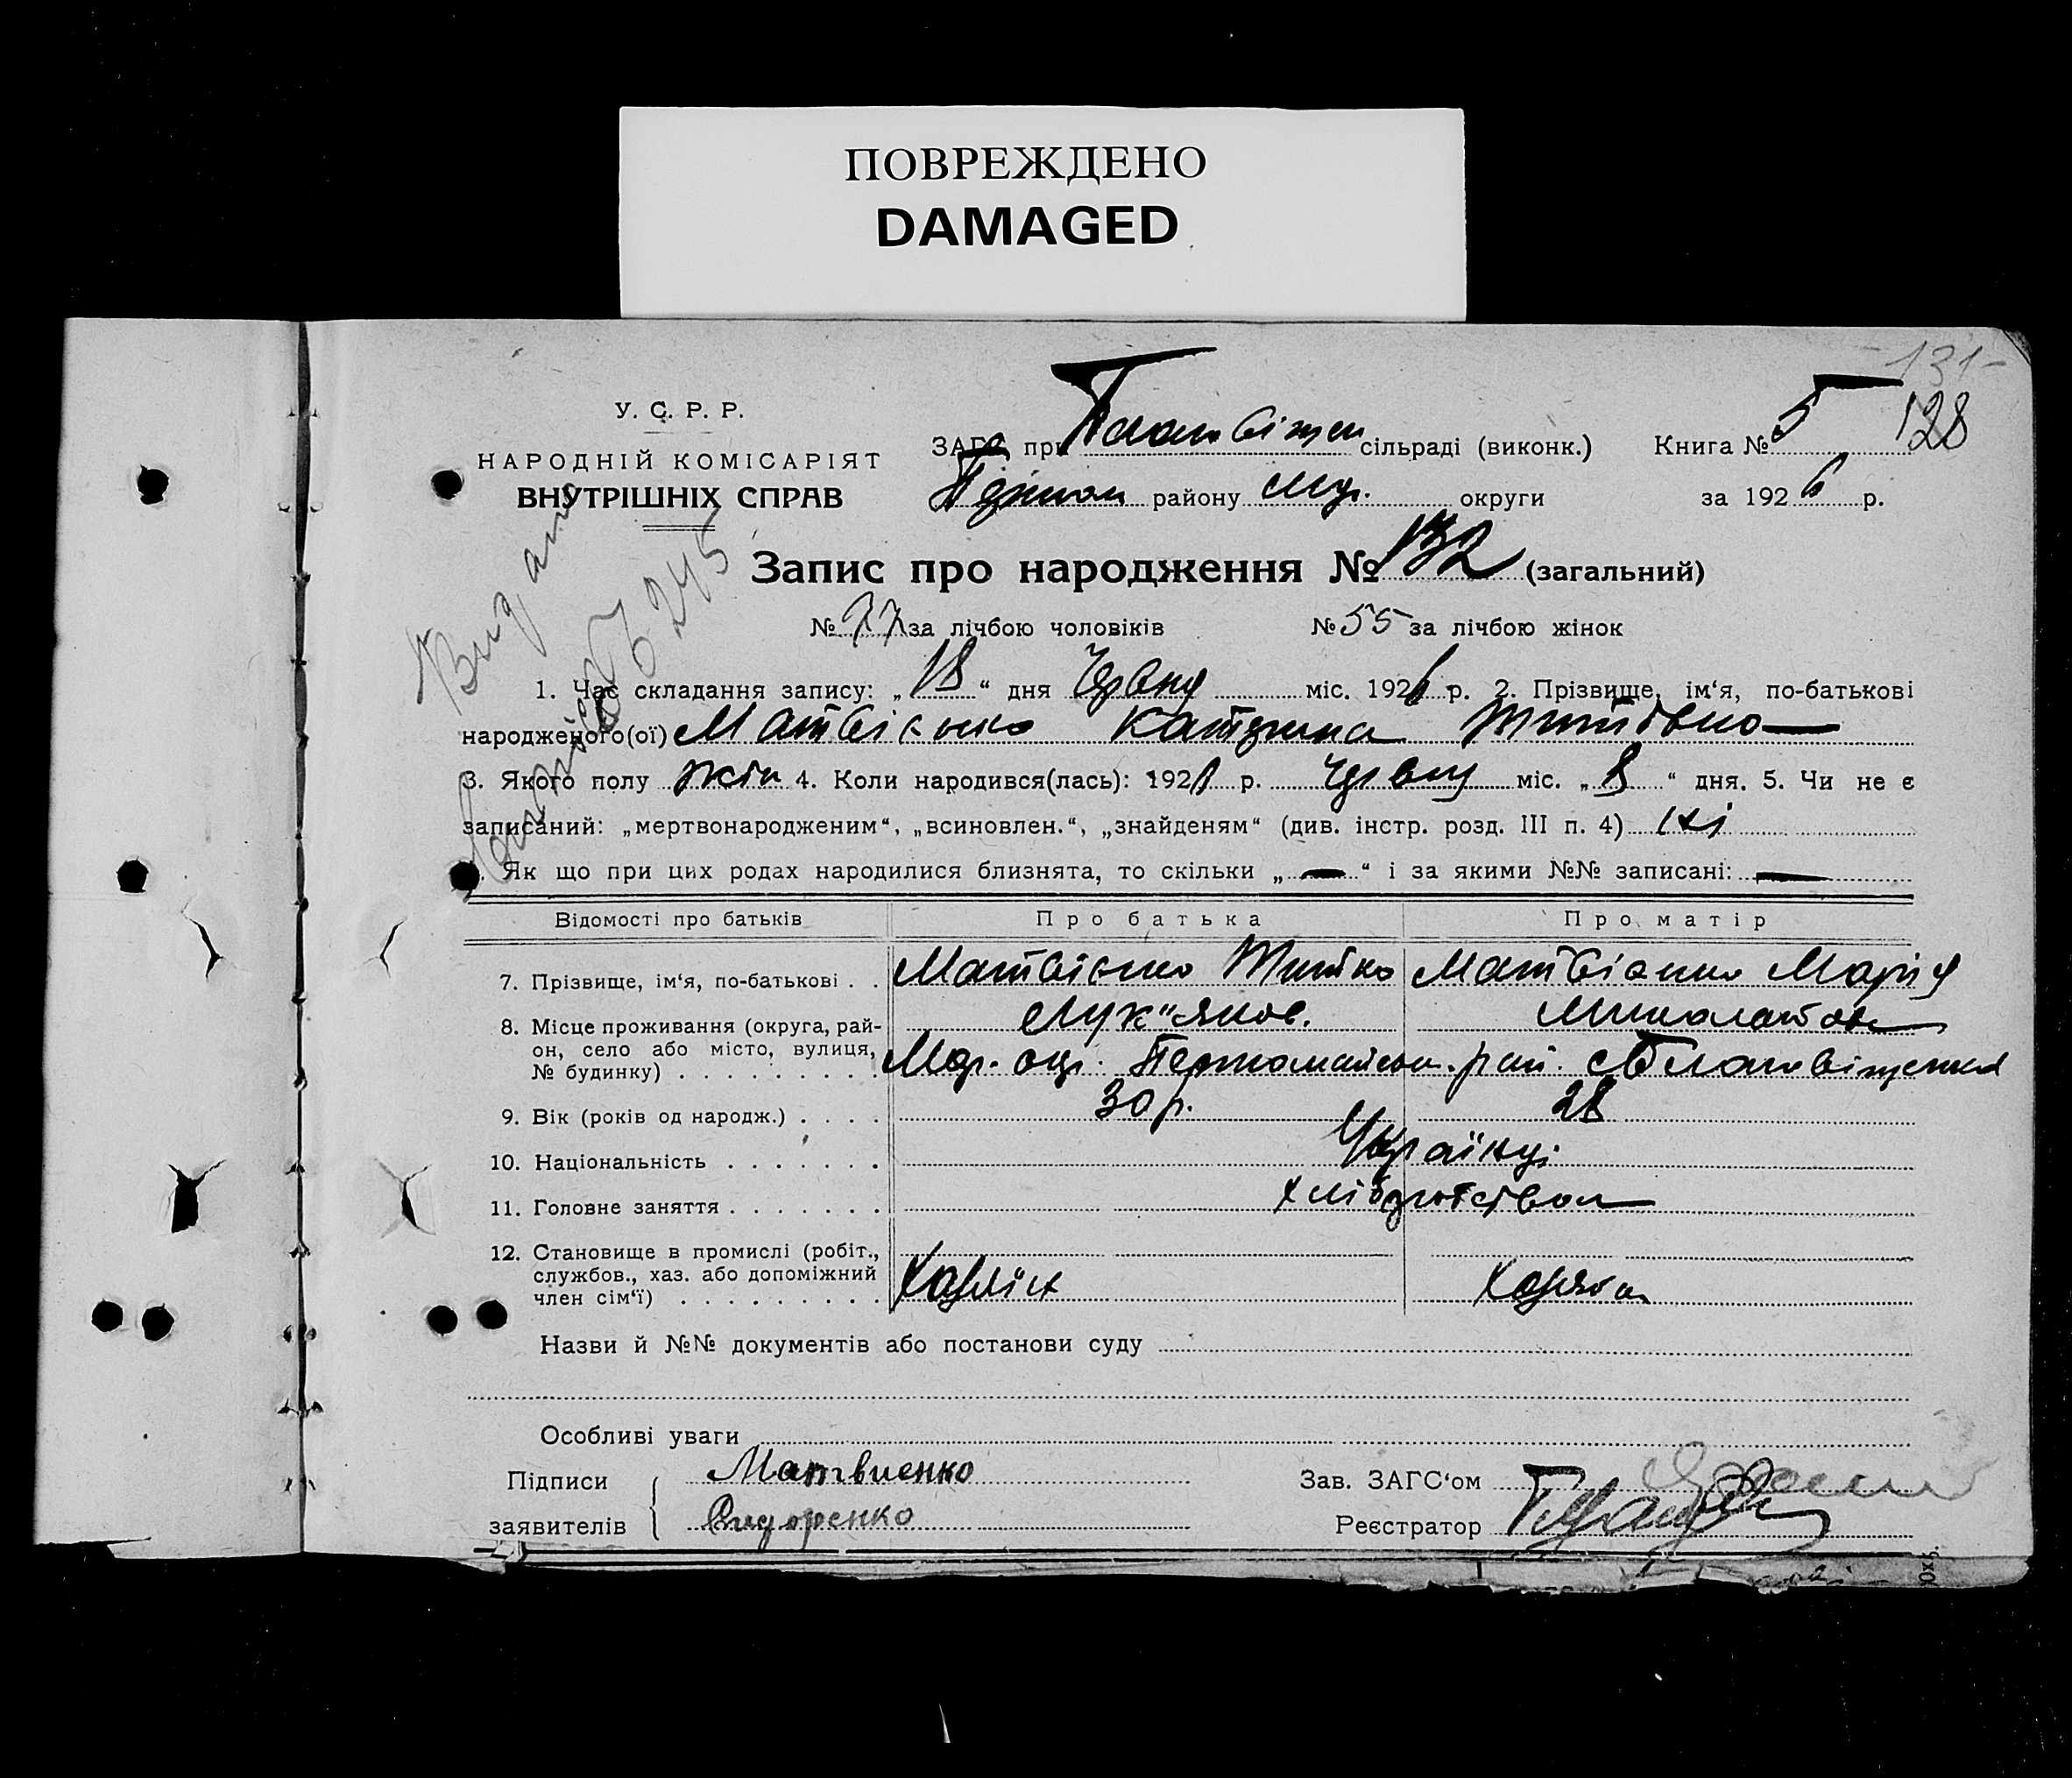 ПОВРЕЖДЕНО
DAMAGED
-131-
128
У. С. Р. Р.
НАРОДНІЙ КОМІСАРІЯТ
ВНУТРІШНІХ СПРАВ
ЗАГС при Благовіщен сільраді (виконк.) Книга № 5
району Мар. округи за 1926 р.
Запис про народження № 132 (загальний)
№ 77 за лічбою чоловіків № 55 за лічбою жінок
1. Час складання запису: „18“ дня Червня міс. 1926 р. 2. Прізвище, ім‘я, по-батькові
народженого(ої) Матвієнко Катерина Титівна
3. Якого полу жін 4. Коли народився(лась): 192 р. Червня міс. „8“ дня. 5. Чи не є
записаний: „мертвонародженим“, „всиновлен.“, „знайденям“ (див. інстр. розд. III п. 4) Ні
. Як що при цих родах народилися близнята, то скільки „—“ і за якими №№ записані: —
Відомості про батьків Про батька Про матір
7. Прізвище, ім‘я, по-батькові . . Матвієнко Титко Матвієнко Марія
Лук"янов. Миколаївна
8. Місце проживання (округа, рай-
он, село або місто, вулиця,
№ будинку) . . . . . . . . . Мар. окр. Першомайськ. рай. с Благовіщенка
9. Вік (років од народж.) . . . . 30 р. 28
10. Національність . . . . . . . Українці
11. Головне заняття . . . . . . . хліборобством
12. Становище в промислі (робіт.,
службов., хаз. або допоміжний
член сім‘ї) . . . . . . . . . Хазяїн Хазяйка
Назви й №№ документів або постанови суду
Особливі уваги
Підписи Матвиенко Зав. ЗАГС‘ом
заявителів Сидоренко Реєстратор